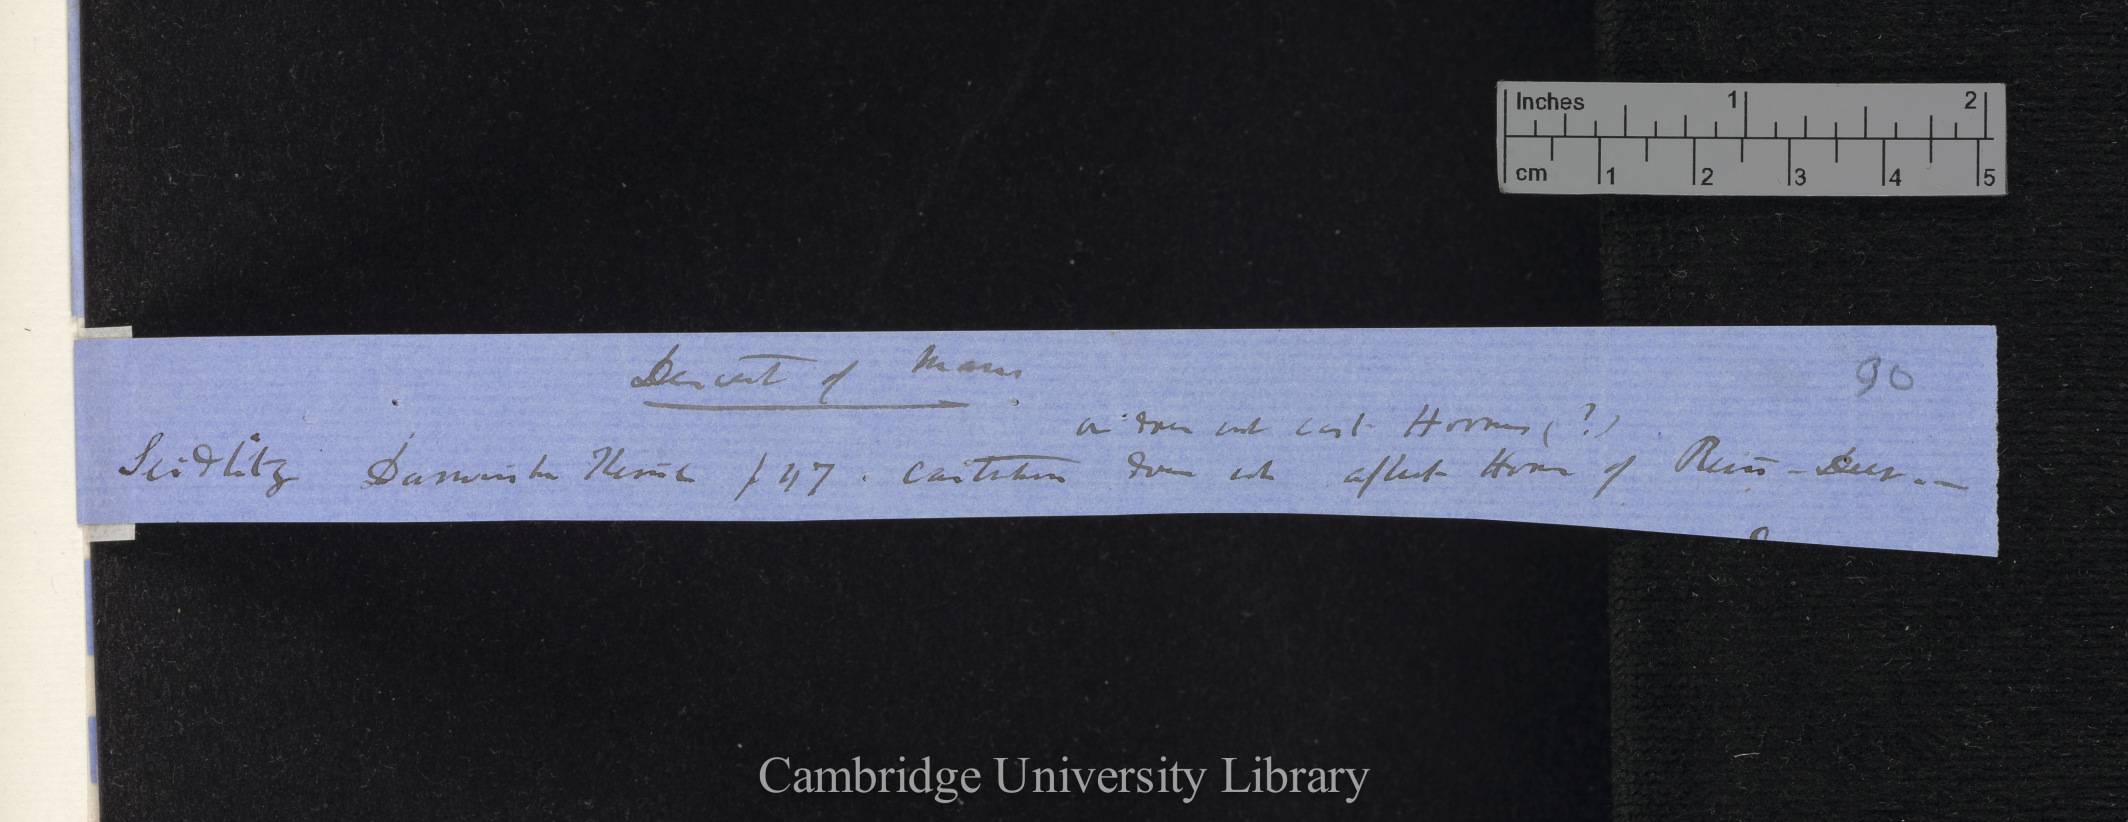 Inches 1 2
cm 1 2 3 4 5
Descent of Man
90
or does not cast Horns (?)
Seidlitz Darwin'sche Theorie p 47. castration does not affect Horns of Rein-Deer.—
Cambridge University Library